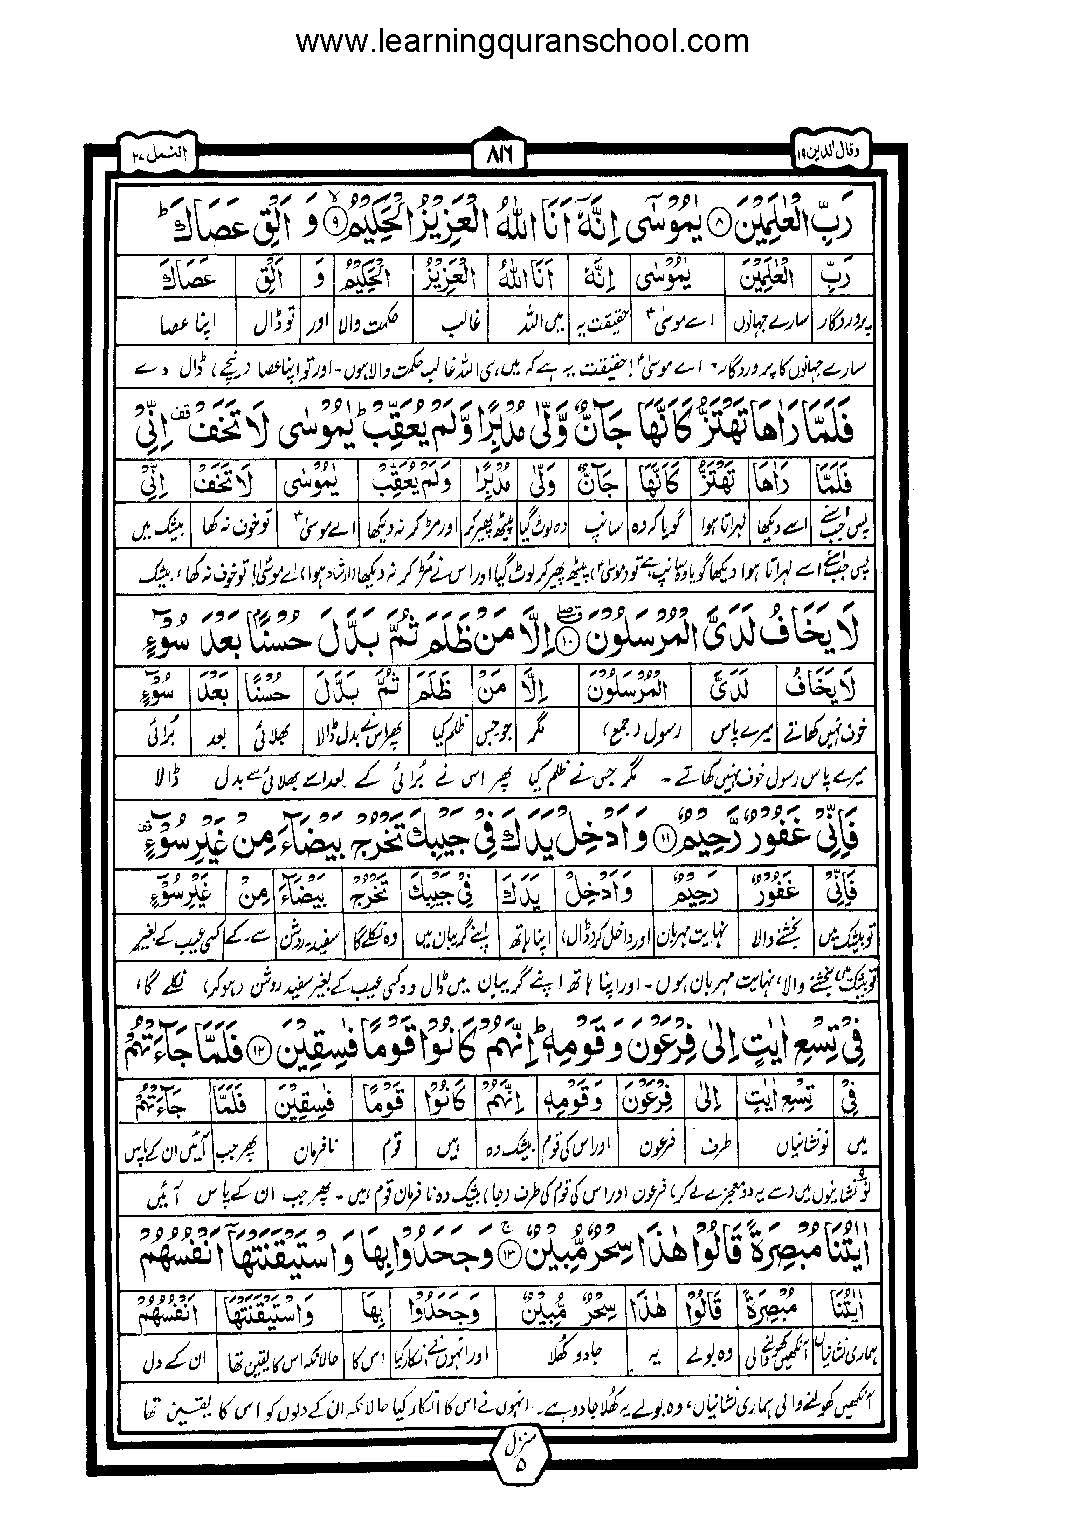 www.learningquranschool.com
وقال الذين ۱۹
۸۱۶
النمل ۲۷
رَبِّ الْعٰلَمِيْنَ ۸ يٰمُوْسٰۤى اِنَّهٗۤ اَنَا اللّٰهُ الْعَزِيْزُ الْحَكِيْمُ ۹ۙ وَ اَلْقِ عَصَاكَ ؕ
رَبِّ الْعٰلَمِيْنَ يٰمُوْسٰۤى اِنَّهٗ اَنَا اللّٰهُ الْعَزِيْزُ الْحَكِيْمُ وَ اَلْقِ عَصَاكَ
پروردگار سارے جہانوں اے موسیٰ حقیقت یہ میں اللہ غالب حکمت والا اور تو ڈال اپنا عصا
سارے جہانوں کا پروردگار۔ اے موسیٰ! حقیقت یہ ہے کہ میں ہی اللہ غالب حکمت والا ہوں۔ اور تو اپنا عصا (نیچے) ڈال دے
فَلَمَّا رَاٰهَا تَهْتَزُّ كَاَنَّهَا جَآنٌّ وَّلّٰى مُدْبِرًا وَّلَمْ يُعَقِّبْ ؕ يٰمُوْسٰى لَا تَخَفْ قف اِنِّيْ
فَلَمَّا رَاٰهَا تَهْتَزُّ كَاَنَّهَا جَآنٌّ وَلّٰى مُدْبِرًا وَلَمْ يُعَقِّبْ يٰمُوْسٰى لَا تَخَفْ اِنِّيْ
پس جب اسنے اسے دیکھا لہراتا ہوا گویا کہ وہ سانپ وہ لوٹ گیا پیٹھ پھیر کر اور مڑ کر نہ دیکھا اے موسیٰ تو خوف نہ کھا بیشک میں
پس جب اسنے اسے لہراتا ہوا دیکھا گویا وہ سانپ ہے تو (موسیٰ) پیٹھ پھیر کر لوٹ گیا اور اس نے مڑ کر نہ دیکھا (ارشاد ہوا) اے موسیٰ! تو خوف نہ کھا، بیشک
لَا يَخَافُ لَدَيَّ الْمُرْسَلُوْنَ ۱۰ اِلَّا مَنْ ظَلَمَ ثُمَّ بَدَّلَ حُسْنًۢا بَعْدَ سُوْٓءٍ
لَا يَخَافُ لَدَيَّ الْمُرْسَلُوْنَ اِلَّا مَنْ ظَلَمَ ثُمَّ بَدَّلَ حُسْنًۢا بَعْدَ سُوْٓءٍ
خوف نہیں کھاتے میرے پاس رسول (جمع) مگر جو جس ظلم کیا پھر اس نے بدل ڈالا بھلائی بعد بُرائی
میرے پاس رسول خوف نہیں کھاتے۔ مگر جس نے ظلم کیا پھر اس نے بُرائی کے بعد اسے بھلائی سے بدل ڈالا
فَاِنِّيْ غَفُوْرٌ رَّحِيْمٌ ۱۱ وَاَدْخِلْ يَدَكَ فِيْ جَيْبِكَ تَخْرُجْ بَيْضَآءَ مِنْ غَيْرِ سُوْٓءٍ قف
فَاِنِّيْ غَفُوْرٌ رَّحِيْمٌ وَاَدْخِلْ يَدَكَ فِيْ جَيْبِكَ تَخْرُجْ بَيْضَآءَ مِنْ غَيْرِ سُوْٓءٍ
تو بیشک میں بخشنے والا نہایت مہربان اور داخل کر (ڈال) اپنا ہاتھ اپنے گریبان میں وہ نکلے گا سفید روشن سے۔کے کسی عیب کے بغیر
تو بیشک میں بخشنے والا، نہایت مہربان ہوں۔ اور اپنا ہاتھ اپنے گریبان میں ڈال وہ کسی عیب کے بغیر سفید روشن (ہو کر) نکلے گا،
فِيْ تِسْعِ اٰيٰتٍ اِلٰى فِرْعَوْنَ وَقَوْمِهٖ ؕ اِنَّهُمْ كَانُوْا قَوْمًا فٰسِقِيْنَ ۱۲ فَلَمَّا جَآءَتْهُمْ
فِيْ تِسْعِ اٰيٰتٍ اِلٰى فِرْعَوْنَ وَقَوْمِهٖ اِنَّهُمْ كَانُوْا قَوْمًا فٰسِقِيْنَ فَلَمَّا جَآءَتْهُمْ
میں نو نشانیاں طرف فرعون اور اس کی قوم بیشک وہ ہیں قوم نافرمان پھر جب آئیں ان کے پاس
نو نشانیوں میں سے یہ دو معجزے لے کر) فرعون اور اس کی قوم کی طرف (جا) بیشک وہ نافرمان قوم ہیں۔ پھر جب ان کے پاس آئیں
اٰيٰتُنَا مُبْصِرَةً قَالُوْا هٰذَا سِحْرٌ مُّبِيْنٌ ۱۳ۚ وَجَحَدُوْا بِهَا وَاسْتَيْقَنَتْهَاۤ اَنْفُسُهُمْ
اٰيٰتُنَا مُبْصِرَةً قَالُوْا هٰذَا سِحْرٌ مُّبِيْنٌ وَجَحَدُوْا بِهَا وَاسْتَيْقَنَتْهَا اَنْفُسُهُمْ
ہماری نشانیاں آنکھیں کھولنے والی وہ بولے یہ جادو کُھلا اور انہوں نے انکار کیا اس کا حالانکہ اس کا یقین تھا ان کے دل
آنکھیں کھولنے والی ہماری نشانیاں، وہ بولے یہ کُھلا جادو ہے۔ انہوں نے اس کا انکار کیا حالانکہ ان کے دلوں کو اس کا یقین تھا
منزل
۵